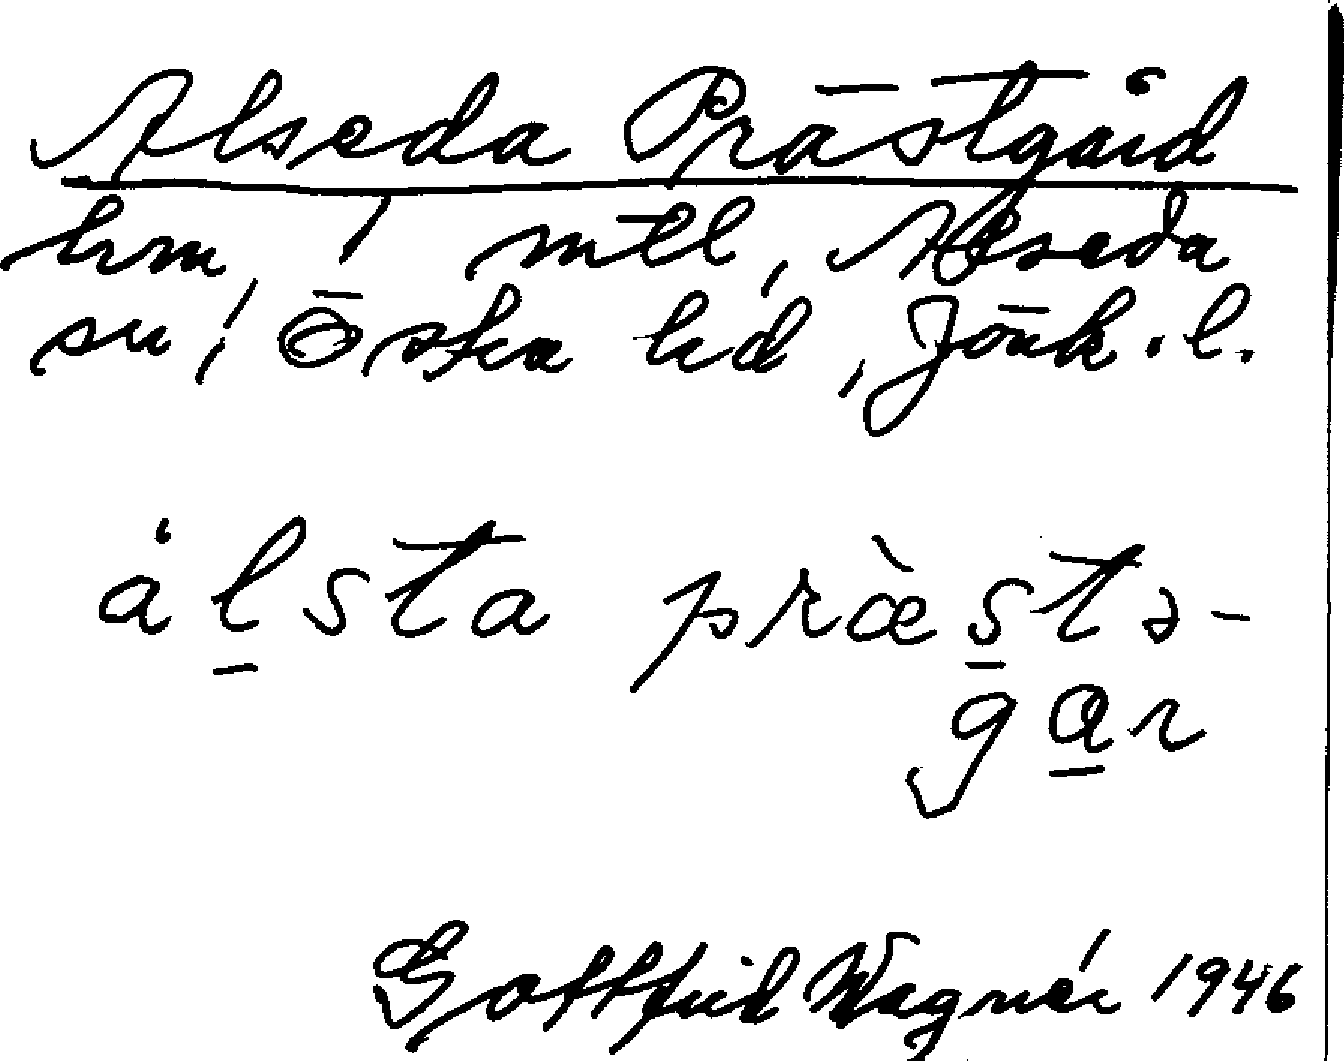 Alseda Prästgård
hm, 1 mtl, Alseda
sn, Östra hd, Jönk. l.
ȧlsta præ̀stə-
gar
Gottfrid Wagnér 1946